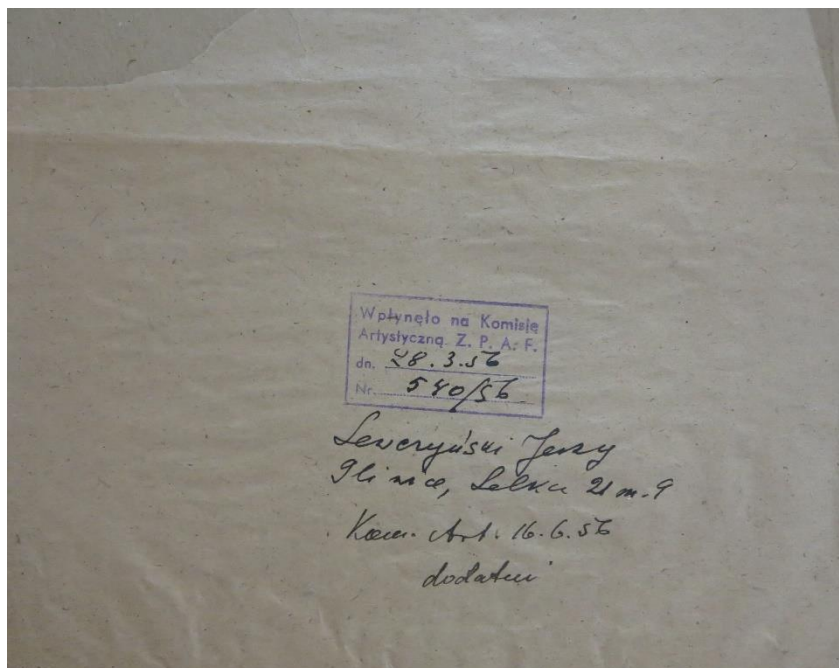 Wpłynęło na Komisję
Artystyczną Z. P. A. F.
dn. 28.3.56
Nr. 540/56
Lewczyński Jerzy
Gliwice, 21 m. 9
Kom. Art. 16.6.56
dodatni